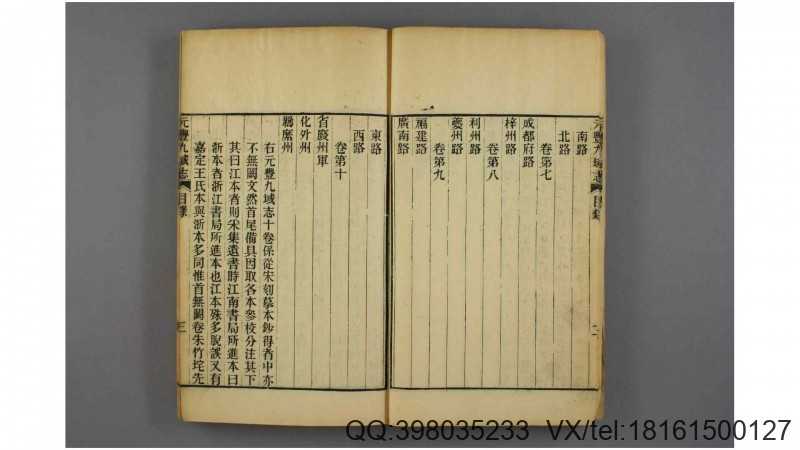 元豐九域志 目錄 二
南路
北路
卷第七
成都府路
梓州路
卷第八
利州路
夔州路
卷第九
福建路
廣南路
東路
西路
卷第十
省廢州軍
化外州
羈縻州
右元豐九域志十卷係從宋刻摹本鈔得者中亦
不無闕文然首尾備具因取各本參校分注其下
其曰江本者則宋集遺書時江南書局所進本曰
浙本者浙江書局所進本也江本殊多脫誤又有
嘉定王氏本與浙本多同惟首無闕卷朱竹垞先
元豐九域志 目錄 三
QQ:398035233 VX/tel:18161500127